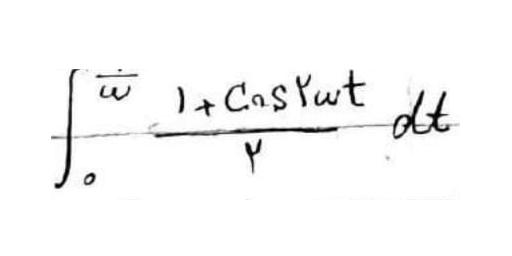 ∫₀^{/ω} (۱ + Cos ۲ωt) / ۲ dt